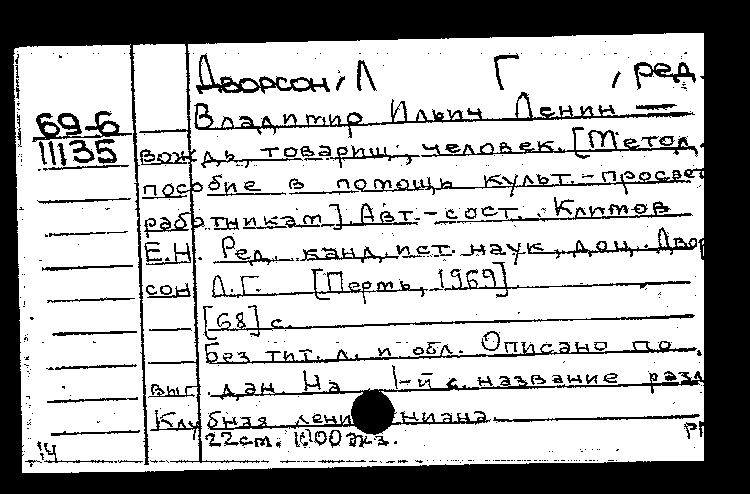 Дворсон, Л Г , ред.
69-6
11135
Владимир Ильич Ленин —
вождь, товарищ, человек. [Метод.
пособие в помощь культ.-просвет
работникам]. Авт.-сост. Климов
Е.Н. Ред. канд. ист. наук, доц. Двор
сон Л.Г. [Пермь, 1969].
[68] с.
Без тит. л. и обл. Описано по
вып. дан. На 1-й с. название разд
Клубная лениниана.
22см. 1000 экз.
14